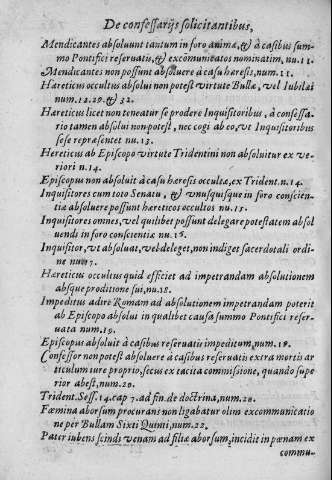 De confessarijs solicitantibus,
Mendicantes absoluunt tantum in foro animæ, & à casibus sum-
mo Pontifici reseruatis, & excomunicatos nominatim, nu.11.
Mendicantes non possunt absoluere à casu hæresis, num.11.
Hæreticus occultus absolui non potest virtute Bullæ, vel Iubilæi
num.12.29. & 32.
Hæreticus licet non teneatur se prodere Inquisitoribus, à confessa-
rio tamen absolui non potest, nec cogi ab eo, vt Inquisitoribus
sese repræsentet nu.13.
Hereticus ab Episcopo virtute Tridentini non absoluitur ex ve-
riori n.14.
Episcopus non absoluit à casu hæresis occultæ, ex Trident.n.14.
Inquisitores cum toto Senatu, & vnusquisque in foro conscien-
tiæ absoluere possunt hæreticos occultos nu.15.
Inquisitores omnes, vel quilibet possunt delegare potestatem absol
uendi in foro conscientiæ nu.16.
Inquisitor, vt absoluat, vel deleget, non indiget sacerdotali ordi-
ne num 7.
Hæreticus occultus quid efficiet ad impetrandam absolutionem
absque proditione sui, nu.18.
Impeditus adire Romam ad absolutionem impetrandam poterit
ab Episcopo absolui in qualibet causa summo Pontifici reser-
uata num.19.
Episcopus absoluit à casibus reseruatis impeditum, num.19.
Confessor non potest absoluere à casibus reseruatis extra mortis ar
ticulum iure proprio, secus ex tacita commissione, quando supe-
rior abest, num.20.
Trident. Sess.14.cap 7.ad fin.de doctrina, num.20.
Fæmina aborsum procurans non ligabatur olim excommunicatio
ne per Bullam Sixti Quinti, num.22.
Pater iubens scindi venam ad filiæ aborsum, incidit in pœnam ex
commu-